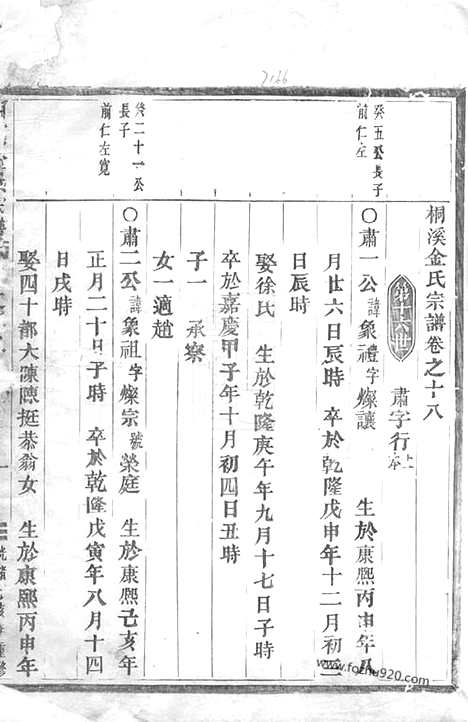 7166
桐溪金氏宗譜卷之十八
第十六世
肅字行上本
癸五公長子
前仁左
〇肅一公諱象禮字燦讓 生於康熙丙申年八
月廿六日辰時 卒於乾隆戊申年十二月初二
日辰時
娶徐氏 生於乾隆庚午年九月十七日子時
卒於嘉慶甲子年十月初四日丑時
子一 承寮
女一適趙
癸二十一公
長子
前仁左寬
〇肅二公諱象祖字燦宗號榮庭 生於康熙己亥年
正月二十日子時 卒於乾隆戊寅年八月十四
日戌時
娶四十都大陳陳挺恭翁女 生於康熙丙申年
www.fozhu920.com